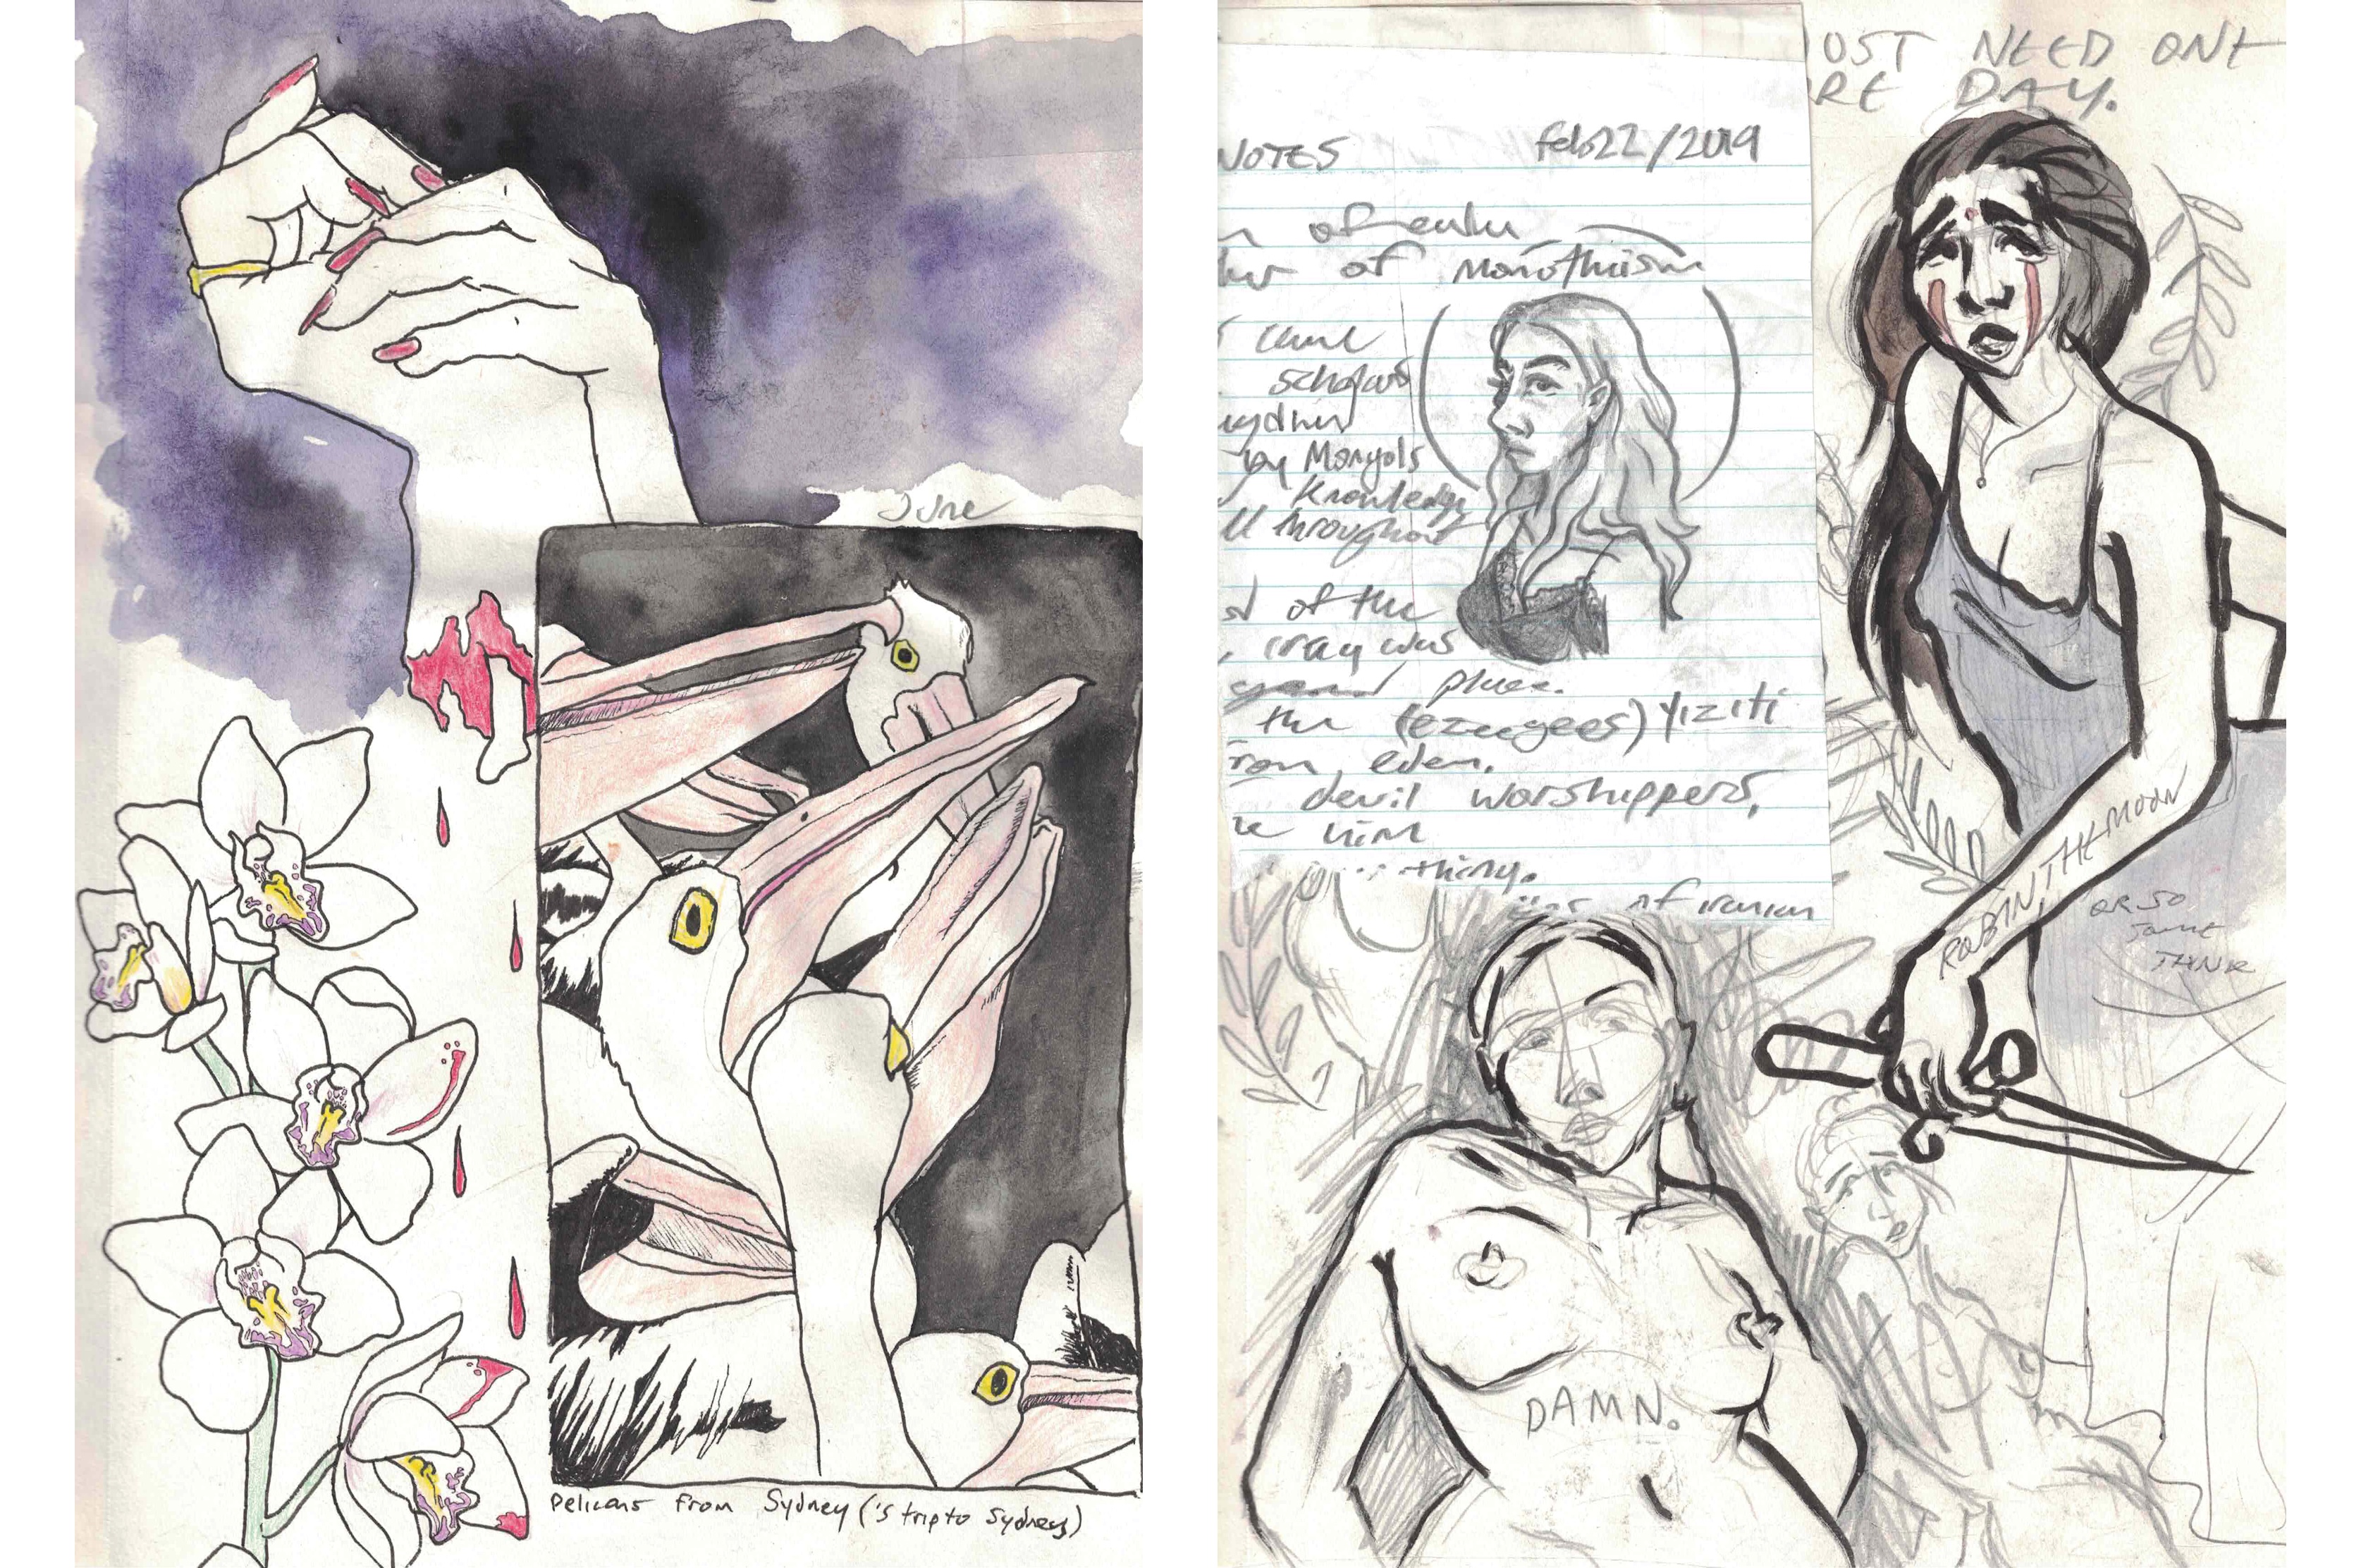 June
Pelicans From Sydney ('s trip to Sydney)
OST NEED ONE
RE DAY.
NOTES feb22/2019
of
of Monothiism
came
scholars
by Mongols
Knowledge
ll throughout
of the
, iraq was
place.
the (ezugees) Yiziti
eden.
devil worshippers,
him
thing.
of iranian
ROBIN, THE MOON
OR SO
SOME
THINK
DAMN.